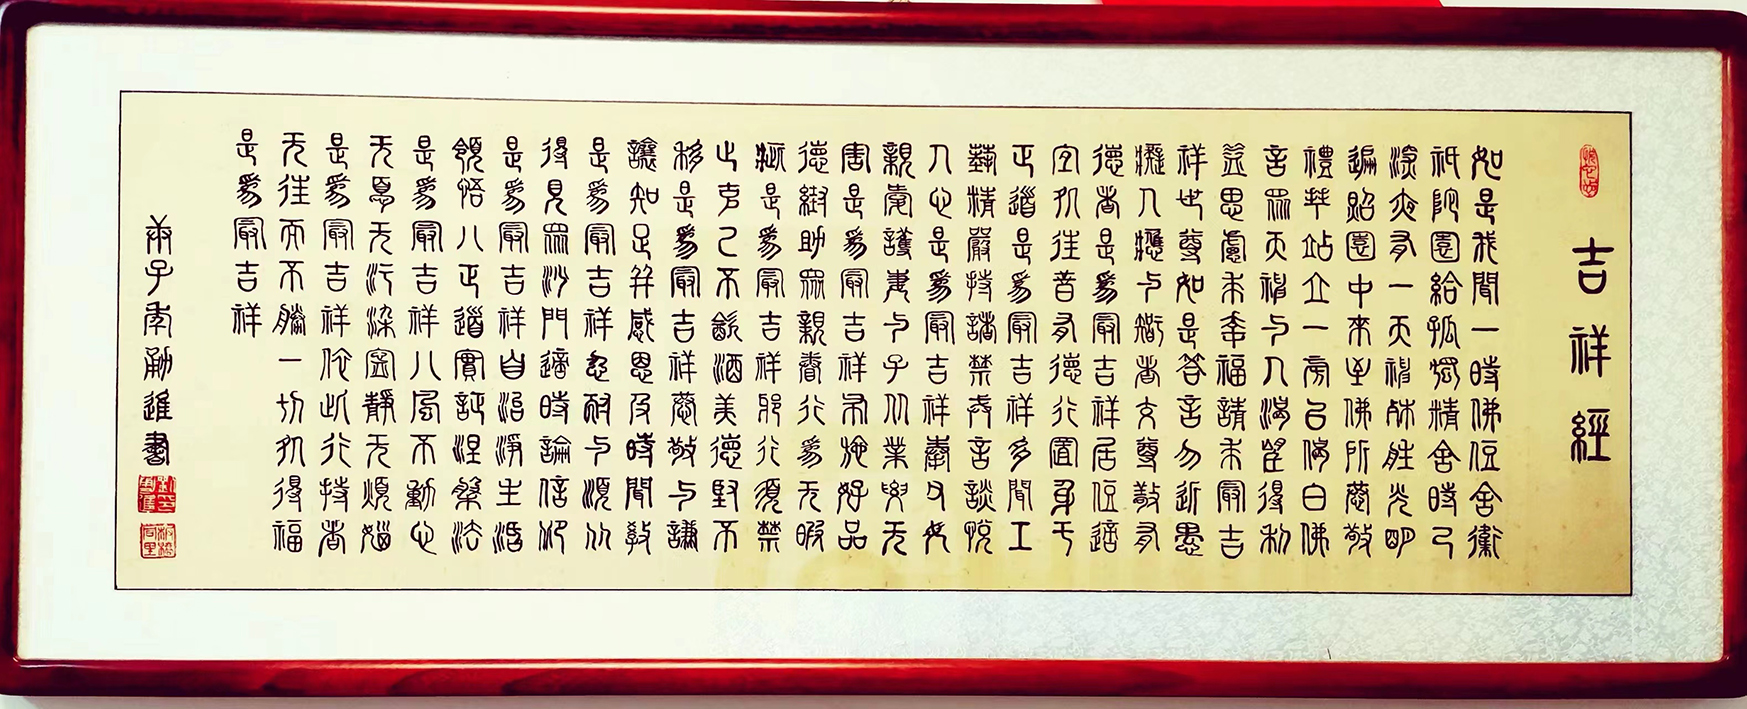 吉祥經
如是我聞一時佛住舍衛
祇陀園給孤獨精舍時已
深夜有一天神殊胜光明
遍照園中來至佛所恭敬
禮畢站立一旁以偈白佛
言眾天神与人渴望得利
益思慮求幸福請示最吉
祥世尊如是答言勿近愚
痴人應与智者交尊敬有
德者是為最吉祥居住適
宜處往昔有德行置身于
正道是為最吉祥多聞工
藝精嚴持諸禁戒言談悅
人心是為最吉祥奉父母
親愛護妻与子從業要无
害是為最吉祥布施好品
德幫助眾親眷行為无瑕
疵是為最吉祥邪行須禁
止克己不飲酒美德堅不
移是為最吉祥恭敬与謙
讓知足并感恩及時聞教
是為最吉祥忍耐与順從
得見眾沙門適時論信仰
是為最吉祥自治淨生活
領悟八正道實証涅槃法
是為最吉祥八風不動心
无憂无污染寧靜无煩惱
是為最吉祥依此行持者
无往而不勝一切處得福
是為最吉祥
庚子年勇進書